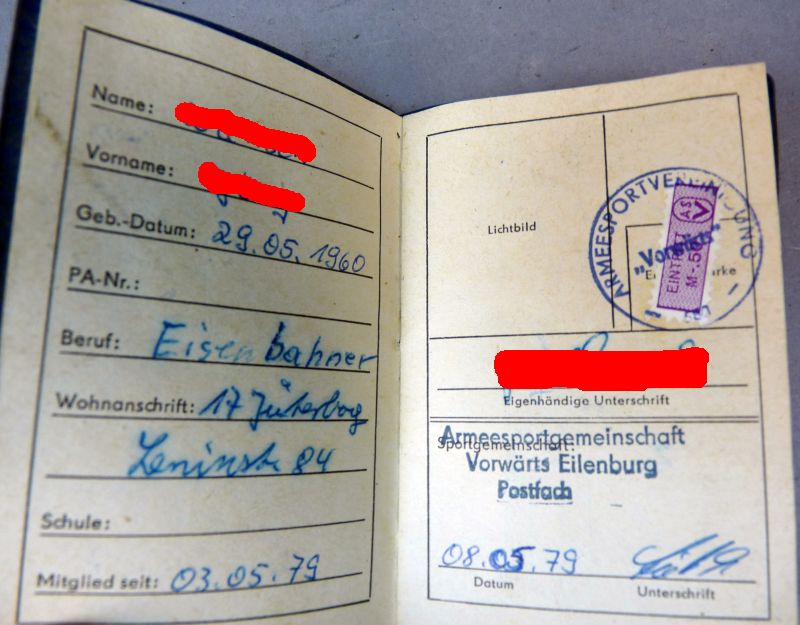 Name:
Vorname:
Geb.-Datum: 29.05.1960
PA-Nr.:
Beruf: Eisenbahner
Wohnanschrift: 17 Jüterbog
Leninstr. 84
Schule:
Mitglied seit: 03.05.79
Lichtbild
ARMEESPORTVEREINIGUNG
"Vorwärts"
EINTRITT
M -.50
ASV
Eigenhändige Unterschrift
Sportgemeinschaft:
Armeesportgemeinschaft
Vorwärts Eilenburg
Postfach
08.05.79
Datum
Unterschrift